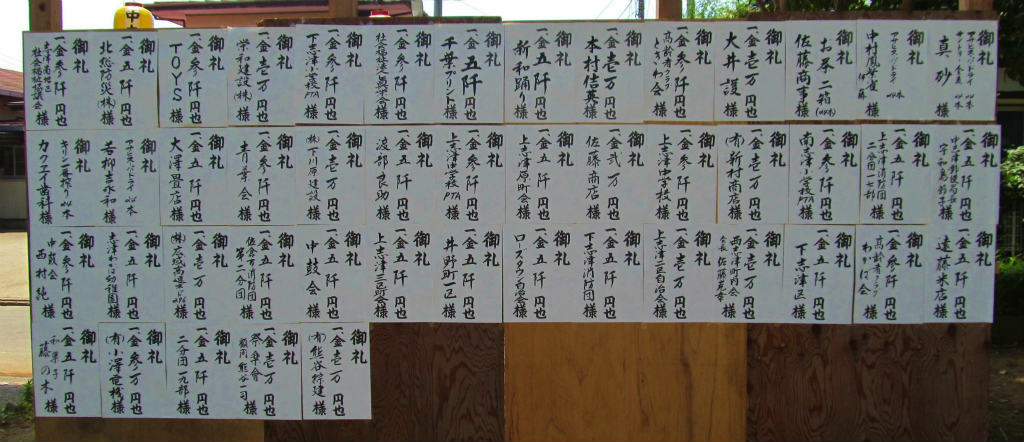 御礼
真砂様
御礼
中村鳳琴
御礼
お茶二箱
佐藤商事様
御礼
一金壱万円也
大井護様
御礼
一金参阡円也
高齢者クラブ
ときわ会様
御礼
一金壱万円也
本村信英様
御礼
一金五阡円也
新和踊り様
御礼
一金五阡円也
千葉プリント様
御礼
一金参阡円也
御礼
一金参阡円也
下志津小学校PTA様
御礼
一金壱万円也
栄和建設(株)様
御礼
一金参阡円也
TOYS様
御礼
一金参阡円也
北総防災(株)様
御礼
一金参阡円也
志津南地区
社会福祉協議会様
御礼
一金五阡円也
御礼
一金五阡円也
上志津消防団
二分団一七部様
御礼
一金参阡円也
南志津小学校PTA様
御礼
一金壱万円也
(有)新村商店様
御礼
一金参阡円也
上志津中学校様
御礼
一金弐万円也
佐藤商店様
御礼
一金五阡円也
上志津原町会様
御礼
一金参阡円也
上志津中学校PTA様
御礼
一金五阡円也
渡部良助様
御礼
一金壱万円也
(株)下川原建設様
御礼
一金参阡円也
青葉会様
御礼
一金五阡円也
大澤畳店様
御礼
若柳吉永和様
御礼
カクエイ歯科様
御礼
一金五阡円也
遠藤米店様
御礼
一金参阡円也
高齢者クラブ
わかば会様
御礼
一金五阡円也
下志津区様
御礼
一金五阡円也
西志津町内会
御礼
一金壱万円也
上志津一区自治会様
御礼
一金五阡円也
下志津消防団様
御礼
一金五阡円也
ローズタウン自治会様
御礼
一金五阡円也
井野町一区様
御礼
一金五阡円也
上志津三区町会様
御礼
一金五阡円也
中鼓会様
御礼
一金参阡円也
佐倉市消防団
第二分団様
御礼
一金壱万円也
御礼
一金五阡円也
志津わかば幼稚園様
御礼
一金参阡円也
中鼓会
西村純様
御礼
一金壱万円也
(有)熊谷綜建様
御礼
一金壱万円也
祭楽會
顧問熊谷一司様
御礼
一金五阡円也
二分団一九部様
御礼
一金参万円也
(有)小澤電機様
御礼
一金五阡円也
和菓子
藤の木様